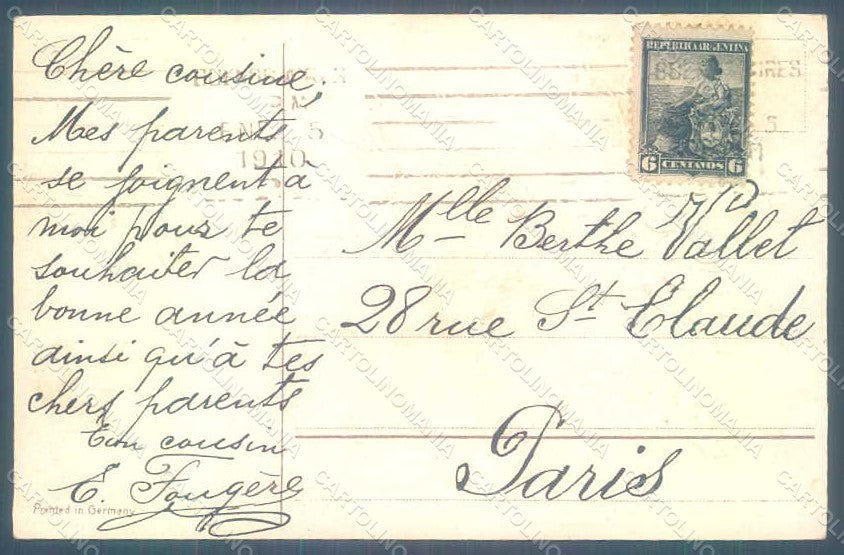 Chère cousine,
Mes parents
se joignent à
moi pour te
souhaiter la
bonne année
ainsi qu'à tes
chers parents
Ton cousin
E. Fougère
Printed in Germany
5
1910
REPUBLICA ARGENTINA
6 CENTAVOS 6
AIRES
Mlle Berthe Vallet
28 rue St Claude
Paris
CARTOLINOMANIA